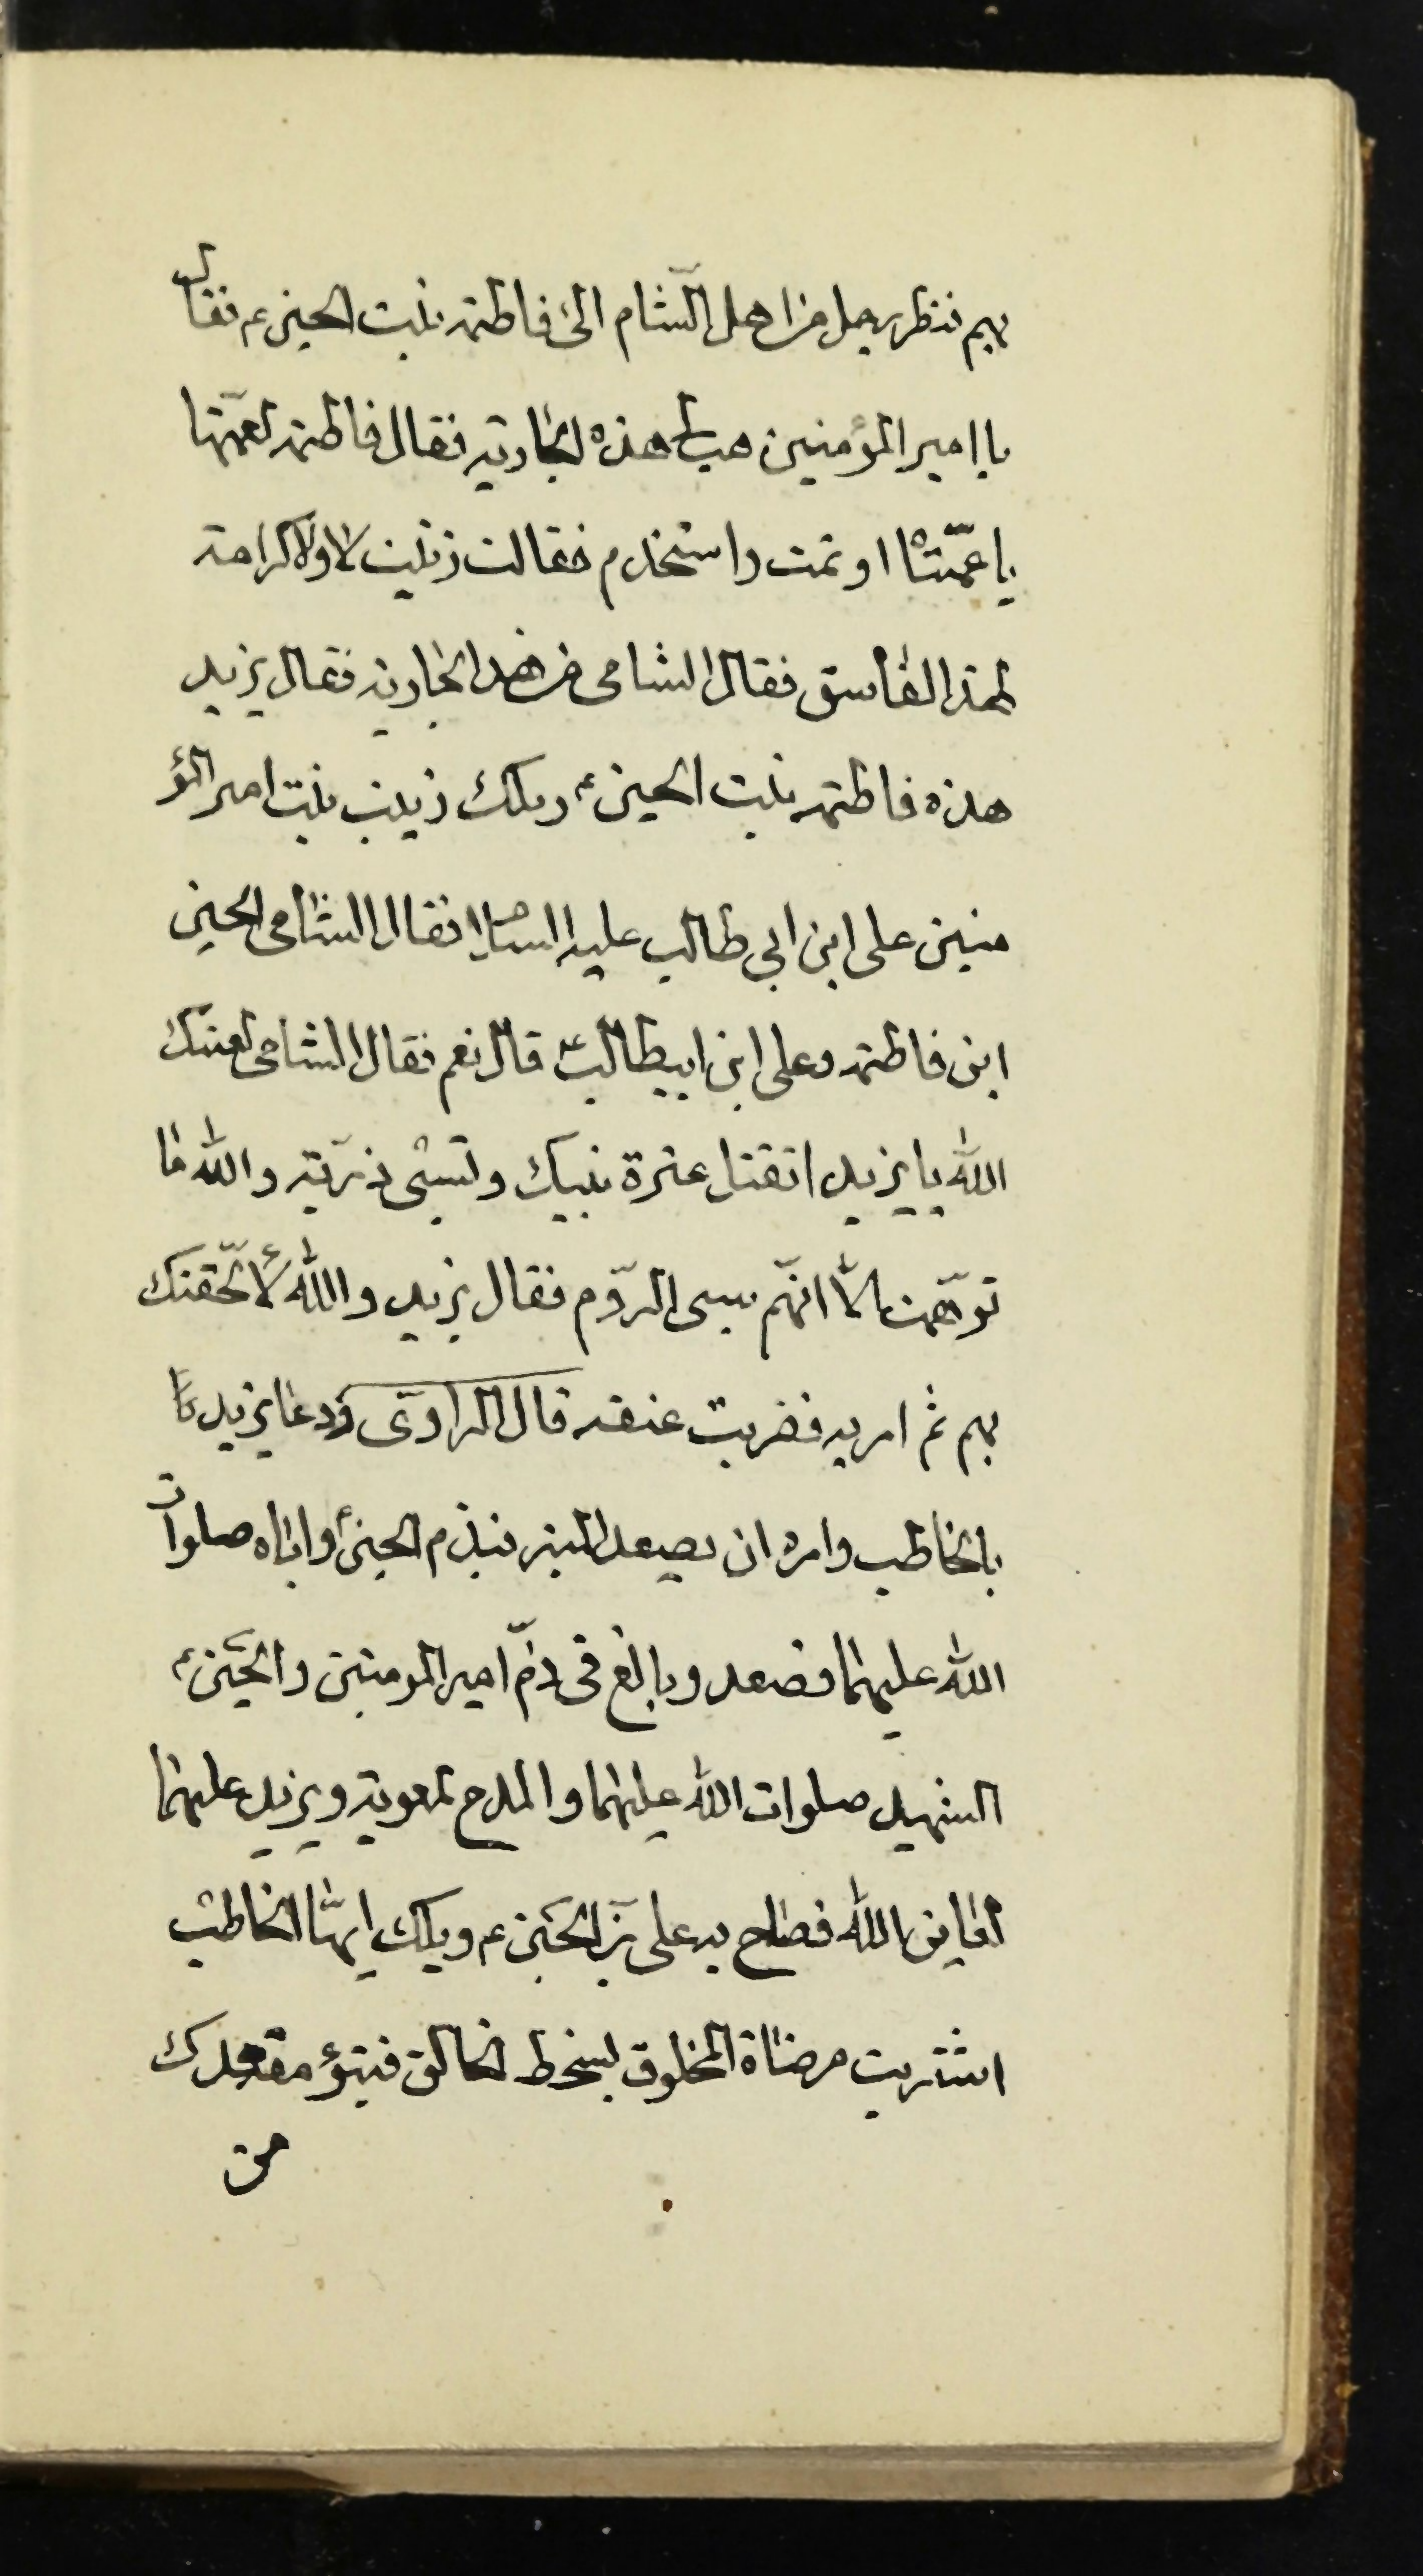 بهم فنظر رجل من اهل الشّام الى فاطمة بنت الحسين ع فقال
يا امير المؤمنين هب لى هذه الجارية فقال فاطمة لعمّتها
يا عمّتاه اوتمت واستخدم فقالت زينب لا ولا كرامة
لهذا الفاسق فقال الشامى من هذا الجارية فقال يزيد
هذه فاطمة بنت الحسين ع وتلك زينب بنت امير المؤ
منين على ابن ابي طالب عليه السلام فقال الشامى الحسين
ابن فاطمة وعلى ابن ابيطالب ع قال نعم فقال الشامى لعنك
الله يا يزيد اتقتل عترة نبيك وتسبى ذريّته والله ما
توهّمت الّا انّهم سبى الروّم فقال يزيد والله لألحّقنك
بهم ثم امر به فضربت عنقه قال الراوى ودعا يزيد
بالخاطب وامره ان يصعد المنبر فيذم الحسين ع واباه صلوات
الله عليهما فصعد وبالغ فى ذمّ امير المومنين والحسين ع
الشهيد صلوات الله عليهما والمدح لمعوية ويزيد عليهما
لعاين الله فصاح به على بن الحسين ع ويلك ايهّا الخاطب
اشتريت مرضاة المخلوق بسخط الخالق فتبؤ مقعدك
من